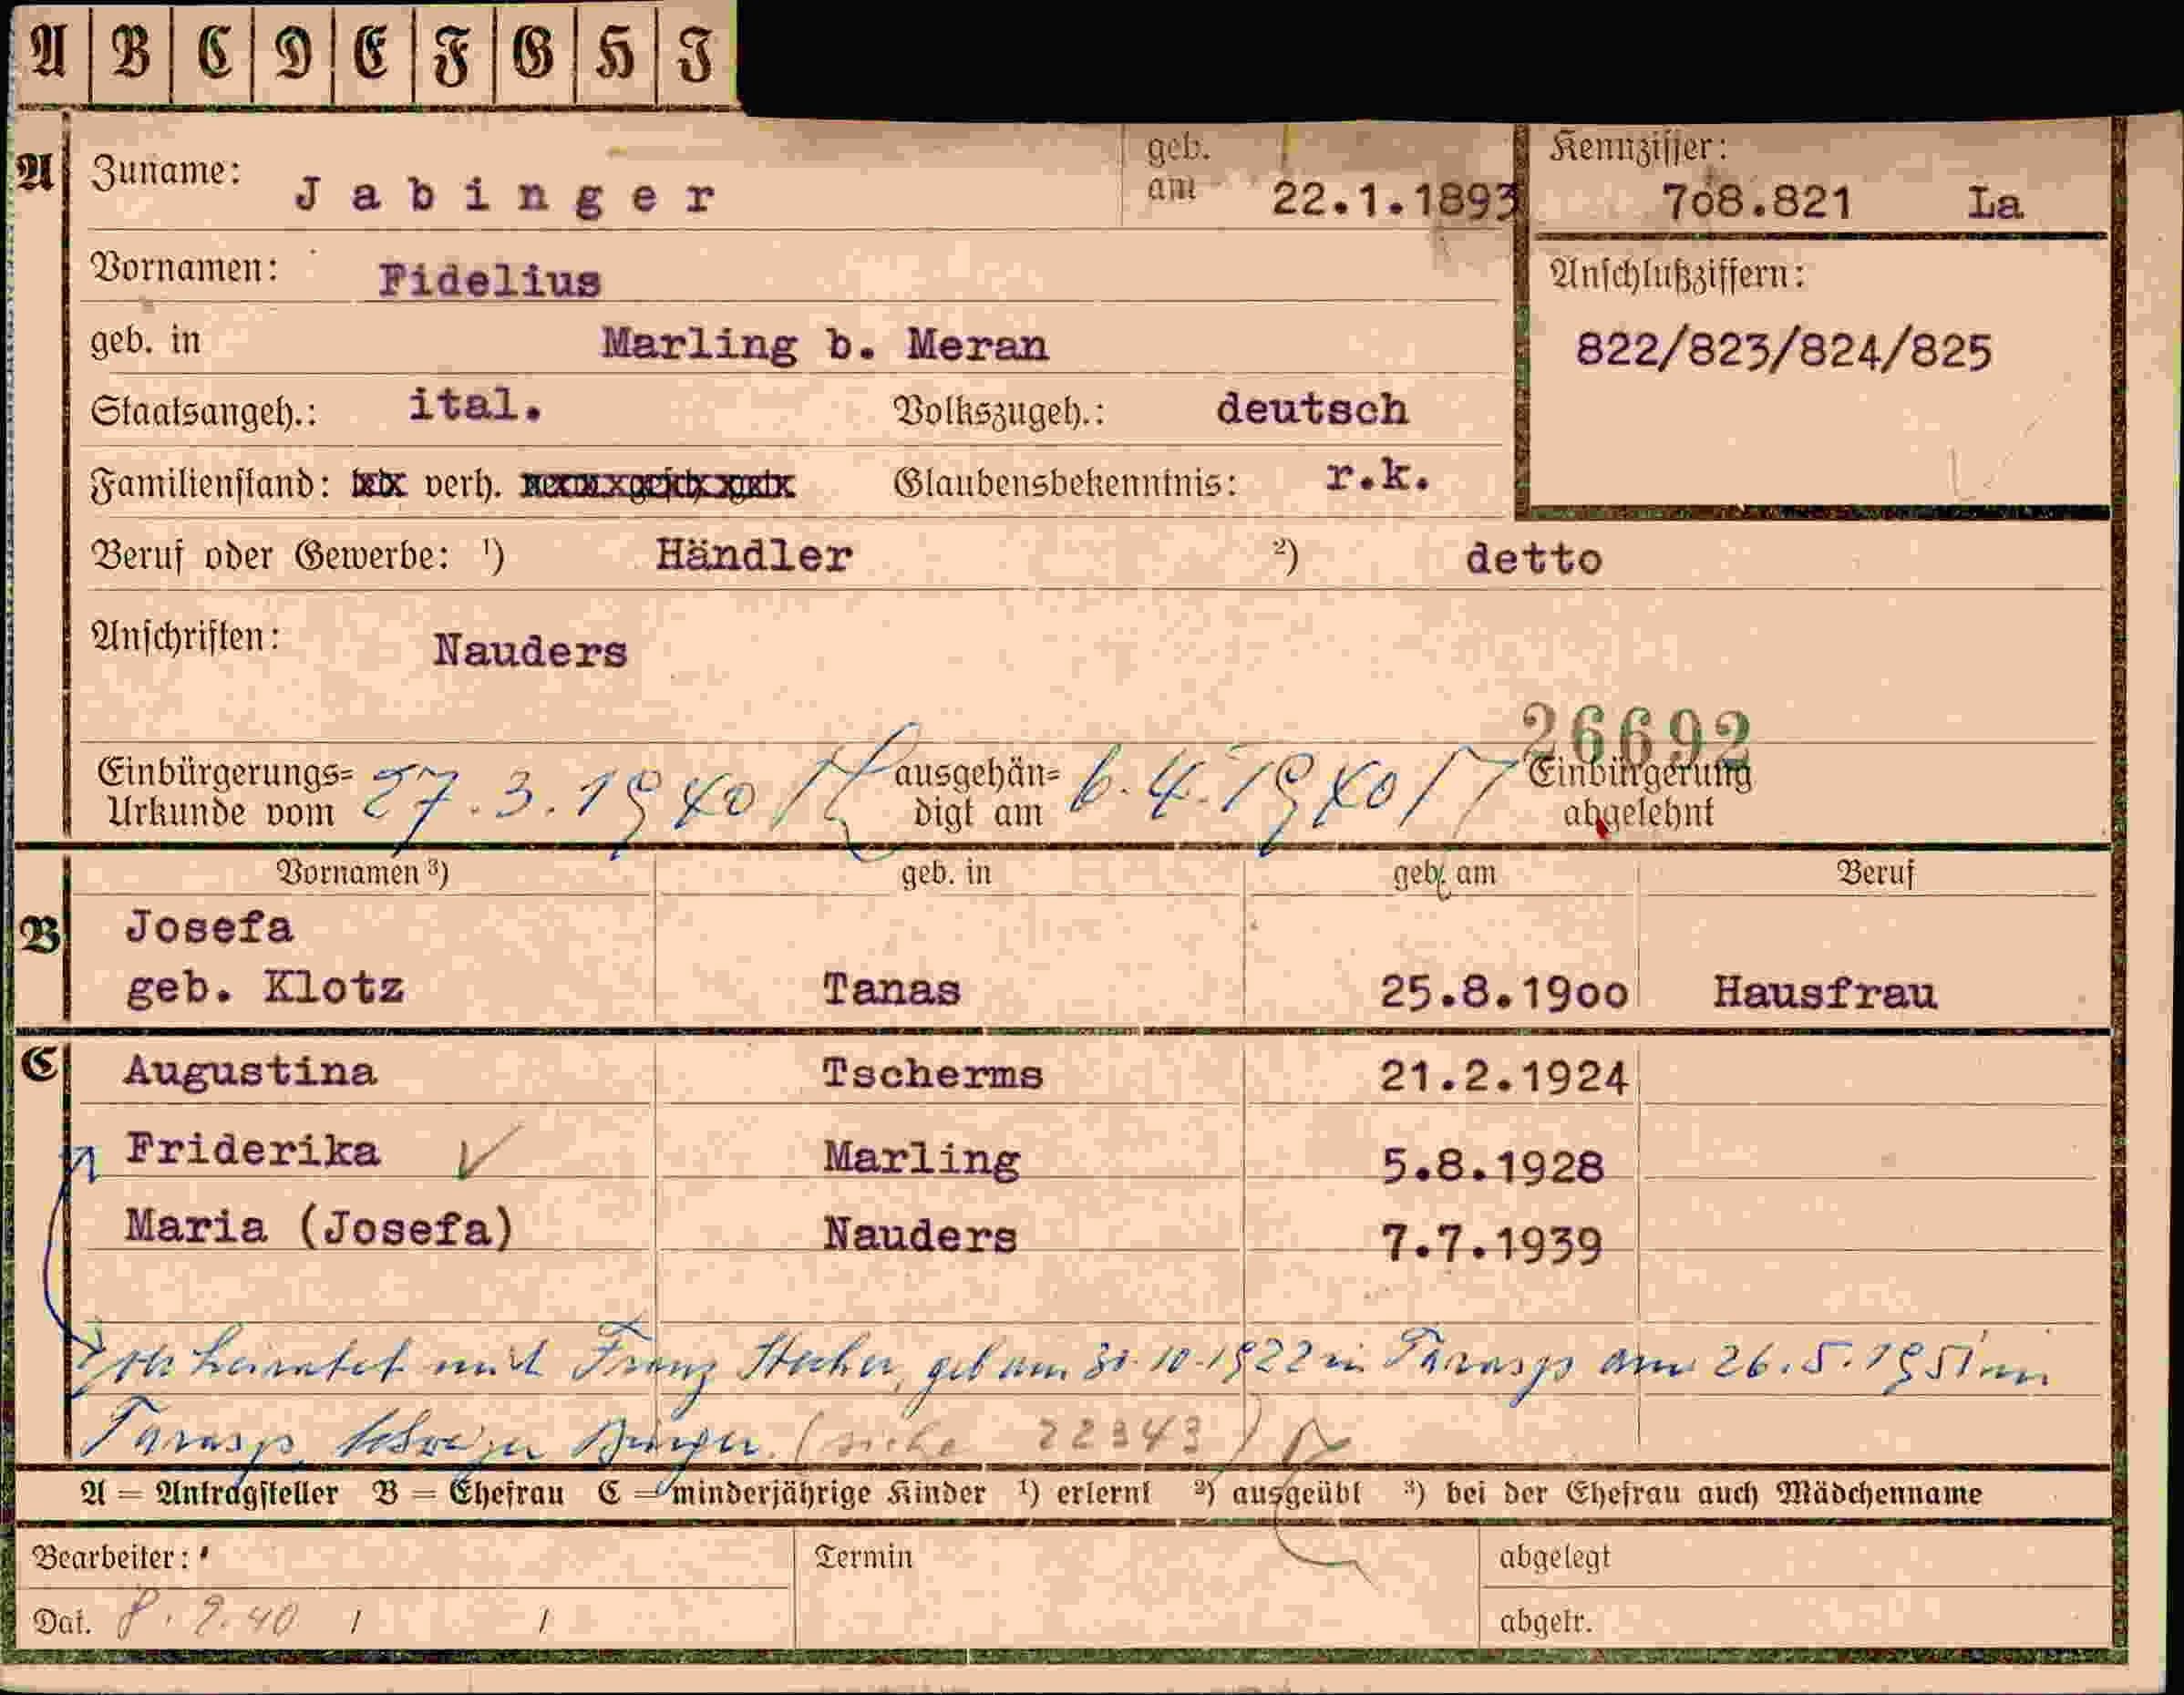 A B C D E F G H J
A Zuname: Jabinger geb. am 22.1.1893 Kennziffer: 7o8.821 La
Vornamen: Fidelius Anschlußziffern:
geb. in Marling b. Meran 822/823/824/825
Staatsangeh.: ital. Volkszugeh.: deutsch
Familienstand: verh. Glaubensbekenntnis: r.k.
Beruf oder Gewerbe: ¹) Händler ²) detto
Anschriften: Nauders
26692
Einbürgerungs= Urkunde vom 27.3.1940 ausgehän= digt am 6.4.1940 Einbürgerung abgelehnt
Vornamen ³) geb. in geb. am Beruf
B Josefa
geb. Klotz Tanas 25.8.19oo Hausfrau
C Augustina Tscherms 21.2.1924
Friderika Marling 5.8.1928
Maria (Josefa) Nauders 7.7.1939
Verheiratet mit Franz geb am 30.10.1922 in Tarasp am 26.5.1951 in
Tarasp, Schweizer Bürger. (siehe 22343)
A = Antragsteller B = Ehefrau C = minderjährige Kinder ¹) erlernt ²) ausgeübt ³) bei der Ehefrau auch Mädchenname
Bearbeiter: Termin abgelegt
Dat. 8.2.40 / / abgetr.